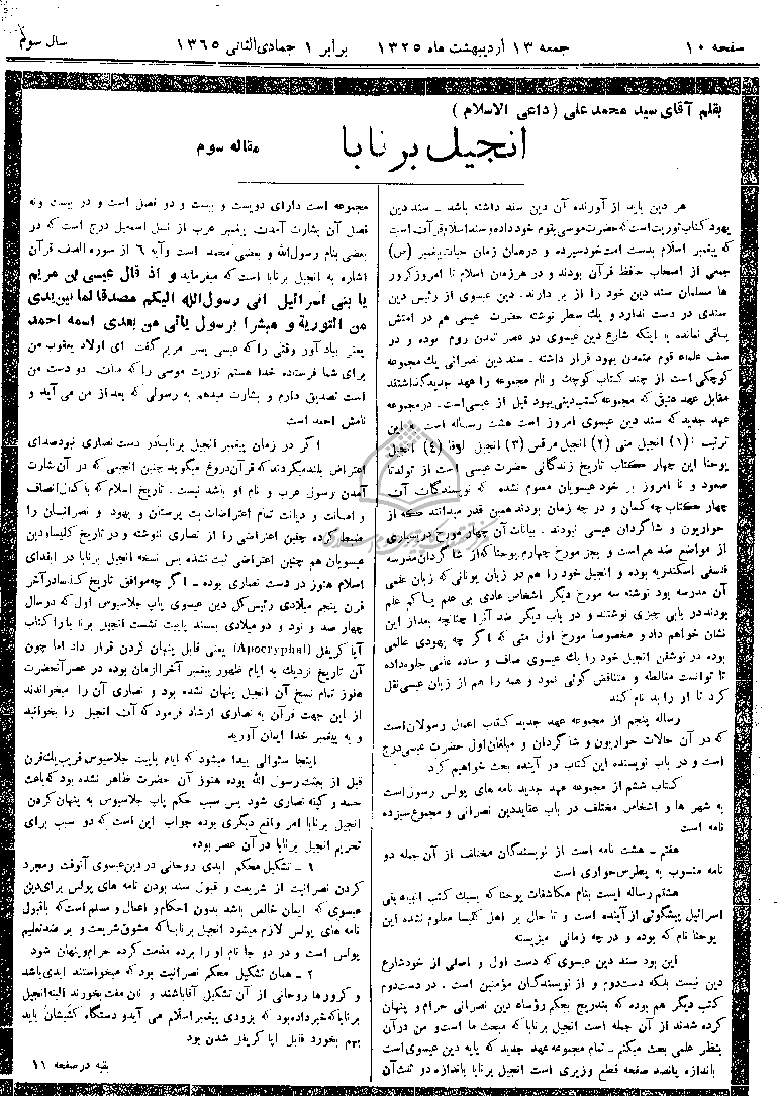 صفحه ۱۰
جمعه ۱۳ اردیبهشت ماه ۱۳۲۵
برابر ۱ جمادی‌الثانی ۱۳۶۵
سال سوم
بقلم آقای سید محمد علی (داعی الاسلام)
انجیل برنابا
مقاله سوم
هر دین باید از آورنده آن دین سند داشته باشد ـ سند دین
یهود کتاب توریت است که حضرت موسی بقوم خود داده و سند اسلام قرآنست
که پیغمبر اسلام بدست امت خود سپرده و در همان زمان حیات پیغمبر (ص)
جمعی از اصحاب حافظ قرآن بودند و در هر زمان اسلام تا امروز کرور
ها مسلمان سند دین خود را از بر دارند . دین عیسوی از رئیس دین
سندی در دست ندارد و یک سطر نوشته حضرت عیسی هم در امتش
باقی نمانده با اینکه شارع دین عیسوی در عصر تمدن روم بوده و در
صف علماء قوم متمدن یهود قرار داشته . سند دین نصرانی یک مجموعه
کوچکی است از چند کتاب کوچک و نام مجموعه را عهد جدید گذاشتند
مقابل عهد عتیق که مجموعه کتب دینی یهود قبل از عیسی است . در مجموعه
عهد جدید که سند دین عیسوی امروز است هشت رساله است به این
ترتیب : (۱) انجیل متی (۲) انجیل مرقس (۳) انجیل لوقا (۴) انجیل
یوحنا این چهار کتاب تاریخ زندگانی حضرت عیسی است از تولد تا
صعود و تا امروز بر خود عیسویان معلوم نشده که نویسندگان آن
چهار کتاب چه کسان و در چه زمان بودند همین قدر میدانند که از
حواریون و شاگردان عیسی نبودند . بیانات آن چهار مورخ در بسیاری
از مواضع ضد هم است و بجز مورخ چهارم یوحنا که از شاگردان مدرسه
فلسفی اسکندریه بوده و انجیل خود را هم در زبان یونانی که زبان علمی
آن مدرسه بود نوشته سه مورخ دیگر اشخاص عادی بی علم یا کم علم
بودند در بابی چیزی نوشتند و در باب دیگر ضد آنرا چنانچه بعد از این
نشان خواهم داد و مخصوصا مورخ اول متی که اگر چه یهودی عالمی
بوده در نوشتن انجیل خود را یک عیسوی صاف و ساده علمی جلوه داده
تا توانست مغالطه و متناقض گوئی نمود و همه را هم از زبان عیسی نقل
کرد تا او را بد نام کند
رساله پنجم از مجموعه عهد جدید کتاب اعمال رسولان است
که در آن حالات حواریون و شاگردان و مبلغان اول حضرت عیسی درج
است و در باب نویسنده این کتاب در آینده بحث خواهیم کرد
کتاب ششم از مجموعه عهد جدید نامه های پولس رسول است
به شهر ها و اشخاص مختلف در باب عقاید دین نصرانی و مجموع سیزده
نامه است
هفتم ـ هشت نامه است از نویسندگان مختلف از آن جمله دو
نامه منسوب به پطرس حواری است
هشتم رساله ایست بنام مکاشفات یوحنا که بسبک کتب انبیاء بنی
اسرائیل پیشگوئی از آینده است و تا حال بر اهل کلیسا معلوم نشده این
یوحنا نام که بوده و در چه زمانی میزیسته
این بود سند دین عیسوی که دست اول و اصلی از خود شارع
دین نیست بلکه دست دوم و از نویسندگان مؤمنین است . در دست دوم
کتب دیگر هم بوده که بتدریج بحکم رؤساء دین نصرانی حرام و پنهان
کرده شدند از آن جمله است انجیل برنابا که مبحث ما است و من در آن
بنظر علمی بحث میکنم ـ تمام مجموعه عهد جدید که پایه دین عیسوی است
باندازه پانصد صفحه قطع وزیری است انجیل برنابا باندازه دو ثلث آن
مجموعه است دارای دویست و بیست و دو فصل است و در بیست ونه
فصل آن بشارت آمدن پیغمبر عرب از نسل اسمعیل درج است که در
بعضی بنام رسول‌الله و بعضی محمد است وآیه ۶ از سوره الصف قرآن
اشاره به انجیل برنابا است که میفرماید و اذ قال عیسی بن مریم
یا بنی اسرائیل انی رسول الله الیکم مصدقا لما بین یدی
من التوریة و مبشرا برسول یاتی من بعدی اسمه احمد
یعنی بیاد آور وقتی را که عیسی پسر مریم گفت ای اولاد یعقوب من
برای شما فرستاده خدا هستم توریت موسی را که مقابل دو دست من
است تصدیق دارم و بشارت میدهم به رسولی که بعد از من می آید و
نامش احمد است
اگر در زمان پیغمبر انجیل برنابا در دست نصاری نبود صدای
اعتراض بلند میکردند که قرآن دروغ میگوید چنین انجیلی که در آن بشارت
آمدن رسول عرب و نام او باشد نیست . تاریخ اسلام که با کمال انصاف
و امانت و دیانت تمام اعتراضات بت پرستان و یهود و نصرانیان را
ضبط کرده چنین اعتراضی را از نصاری ننوشته و در تاریخ کلیساء دین
عیسویان هم چنین اعتراضی ثبت نشده پس نسخه انجیل برنابا در ابتدای
اسلام هنوز در دست نصاری بوده ـ اگر چه موافق تاریخ کلیسا در آخر
قرن پنجم میلادی رئیس کل دین عیسوی پاپ جلاسیوس اول که در سال
چهار صد و نود و دو میلادی بمسند پاپیت نشست انجیل برنابا را کتاب
آپا کریفل (Apocryphal) یعنی قابل پنهان کردن قرار داد اما چون
آن تاریخ نزدیک به ایام ظهور پیغمبر آخرالزمان بوده در عصر آنحضرت
هنوز تمام نسخ آن انجیل پنهان نشده بود و نصاری آن را میخواندند
از این جهت قرآن به نصاری ارشاد فرمود که آن انجیل را بخوانید
و به پیغمبر خدا ایمان آورید
اینجا سئوالی پیدا میشود که ایام پاپیت جلاسیوس قریب یک قرن
قبل از بعثت رسول الله بوده هنوز آن حضرت ظاهر نشده بود که باعث
حسد و کینه نصاری شود پس سبب حکم پاپ جلاسیوس به پنهان کردن
انجیل برنابا امر واقع دیگری بوده جواب این است که دو سبب برای
تحریم انجیل برنابا در آن عصر بوده
۱ ـ تشکیل محکم ابدی روحانی در دین عیسوی آنوقت و مجرد
کردن نصرانیت از شریعت و قبول سند بودن نامه های پولس برای دین
عیسوی که ایمان خالص باشد بدون احکام و اعمال و مسلم است که با قبول
نامه های پولس لازم میشود انجیل برنابا که مشوق شریعت و بر ضد تعلیم
پولس است و در دو جا نام او را برده مذمت کرده حرام و پنهان شود
۲ ـ همان تشکیل محکم نصرانیت بود که میخواستند ابدی باشد
و کرورها روحانی از آن تشکیل آقا باشند و نان مفت بخورند البته انجیل
برنابا که خبر داده بود که بزودی پیغمبر اسلام می آید و دستگاه کشیشان باید
بهم بخورد قابل آپا کریفل شدن بود
بقیه در صفحه ۱۱